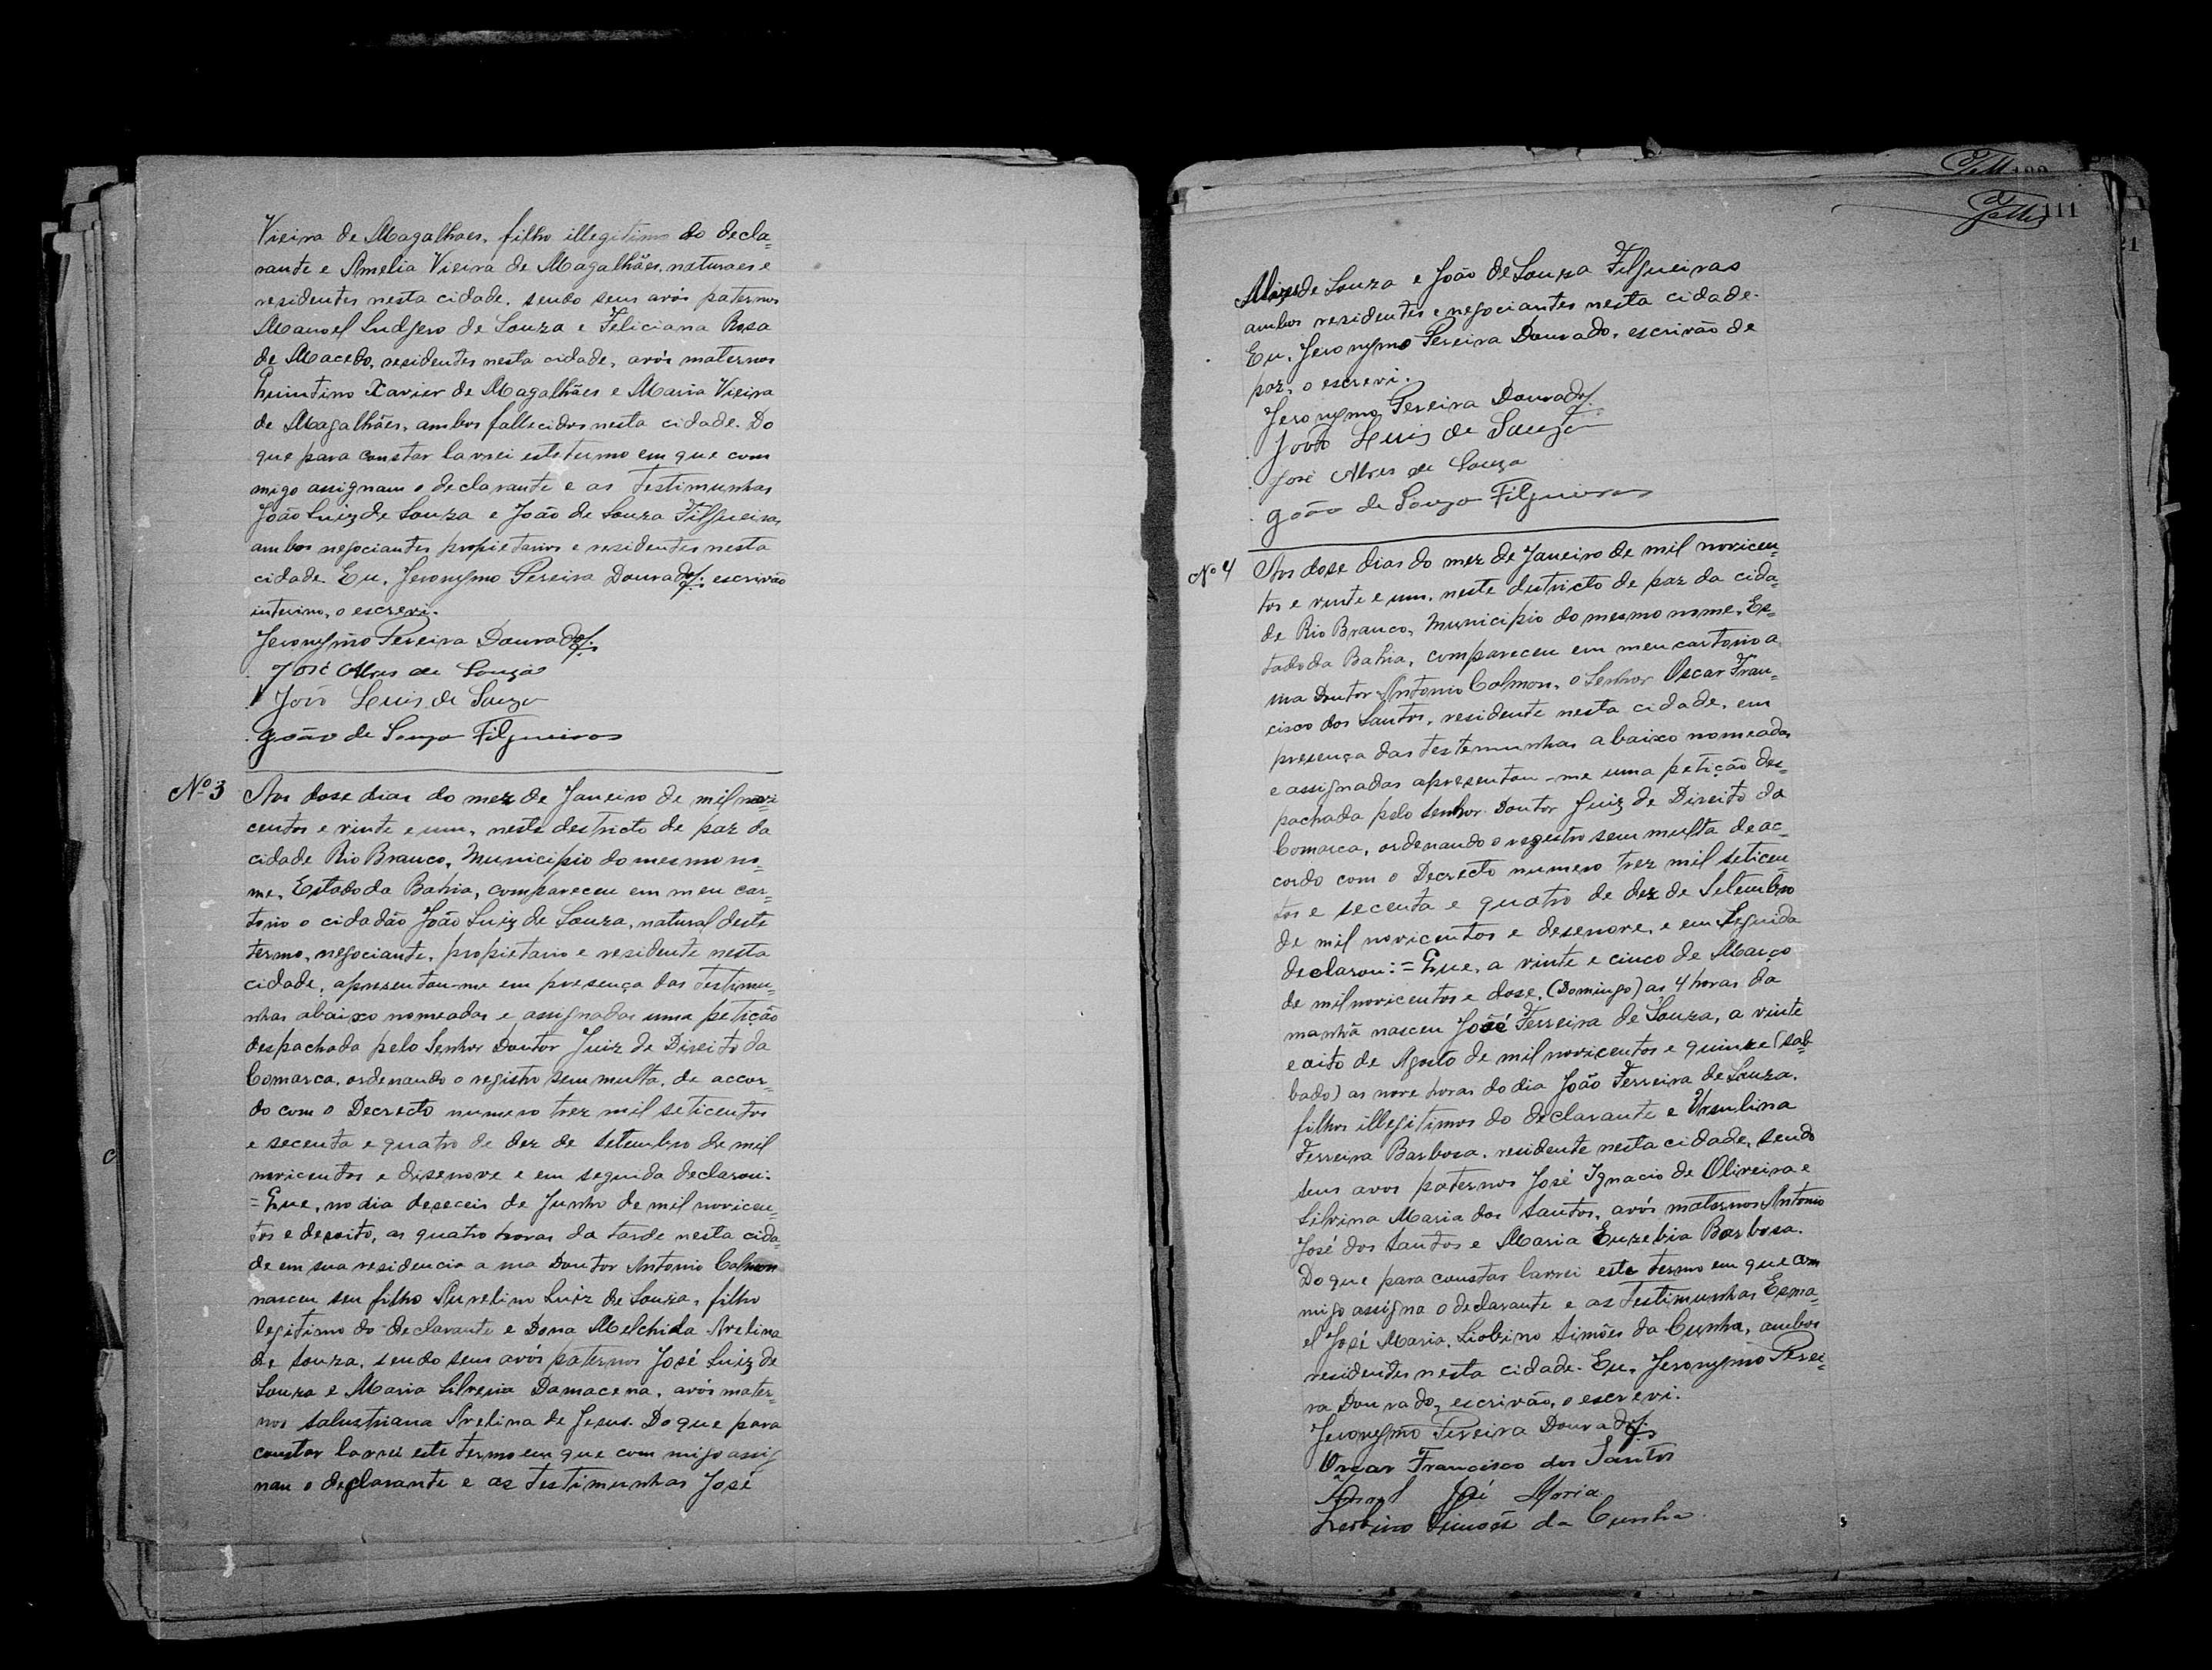 Vieira de Magalhaes, filho illegitimo do decla=
rante e Amelia Vieira de Magalhães, naturaes e
residentes nesta cidade, sendo seus avós paternos
Manoel Ludgero de Souza e Feliciana Rosa
de Macebo, residentes nesta cidade, avós maternos
Quintino Xavier de Magalhães e Maria Vieira
de Magalhães, ambos fallecidos nesta cidade. Do
que para constar lavrei este termo em que com
migo assignam o declarante e as testimunhas
João Luiz de Souza e João de Souza Filgueiras
ambos negociantes propietarios e residentes nesta
cidade. Eu, Jeronymo Pereira Dourado, escrivão
interino, o escrevi.
Jeronymo Pereira Dourado
José Alves de Souza
João Luis de Souza
João de Souza Filgueiras
Nº 3 Aos dose dias do mez de Janeiro de mil novi
centos e vinte e um, neste destricto de paz da
cidade Rio Branco, Municipio do mesmo no=
me, Estado da Bahia, compareceu em meu car=
torio o cidadão João Luiz de Souza, natural deste
termo, negociante, propietario e residente nesta
cidade, apresentou-me em presença das testimu=
nhas abaixo nomeadas e assignadas uma petição
despachada pelo Senhor Doutor Juiz de Direito da
Comarca, ordenando o registro sem multa, de accor=
do com o Decrecto numero trez mil seticentos
e secenta e quatro de dez de Setembro de mil
novicentos e disenove e em seguida declarou:
= Que, no dia deseceis de Junho de mil novicen=
tos e dezoito, as quatro horas da tarde nesta cida=
de em sua residencia a rua Doutor Antonio Calmon
nasceu seu filho Aurelino Luiz de Souza, filho
legitimo do declarante e Dona Melchida Avelina
de Souza, sendo seus avós paternos José Luiz de
Souza e Maria Silveria Damacena, avós mater=
nos Salustriana Avelina de Jesus. Do que para
constar lavrei este termo em que com migo assig
nam o declarante e as testimunhas José
111
Alves de Souza e João de Souza Filgueiras
ambos residentes e negociantes nesta cidade.
Eu, Jeronymo Pereira Dourado, escrivão de
paz, o escrevi.
Jeronymo Pereira Dourado
João Luis de Souza
José Alves de Souza
João de Souza Filgueiras
Nº 4 Aos dose dias do mez de Janeiro de mil novicen=
tos e vinte e um, neste destricto de paz da cida=
de Rio Branco, Municipio do mesmo nome, Es=
tado da Bahia, compareceu em meu cartorio a
rua Doutor Antonio Calmon, o Senhor Oscar Fran=
cisco dos Santos, residente nesta cidade, em
presença das testemunhas abaixo nomeadas
e assignadas apresentou-me uma petição des=
pachada pelo Senhor Doutor Juiz de Direito da
Comarca, ordenando o registro sem multa de ac=
cordo com o Decrecto numero trez mil seticen=
tos e secenta e quatro de dez de Setembro
de mil novicentos e desenove, e em seguida
declarou: = Que, a vinte e cinco de Março
de mil novicentos e dose, (Domingo) as 4 horas da
manhã nasceu José Ferreira de Souza, a vinte
e oito de Agosto de mil novicentos e quinze (sab
bado) as nove horas do dia João Ferreira de Souza,
filhos illegitimos do declarante e Ursulina
Ferreira Barbosa, residente nesta cidade, sendo
seus avos paternos José Ignacio de Oliveira e
Silvina Maria dos Santos, avós maternos Antonio
José dos Santos e Maria Euzebia Barbosa.
Do que para constar lavrei este termo em que com
migo assigna o declarante e as testimunhas Esma=
el José Maria, Liobino Simões da Cunha, ambos
residentes nesta cidade. Eu, Jeronymo Perei=
ra Dourado, escrivão, o escrevi.
Jeronymo Pereira Dourado
Oscar Francisco dos Santos
José Maria
Simões da Cunha